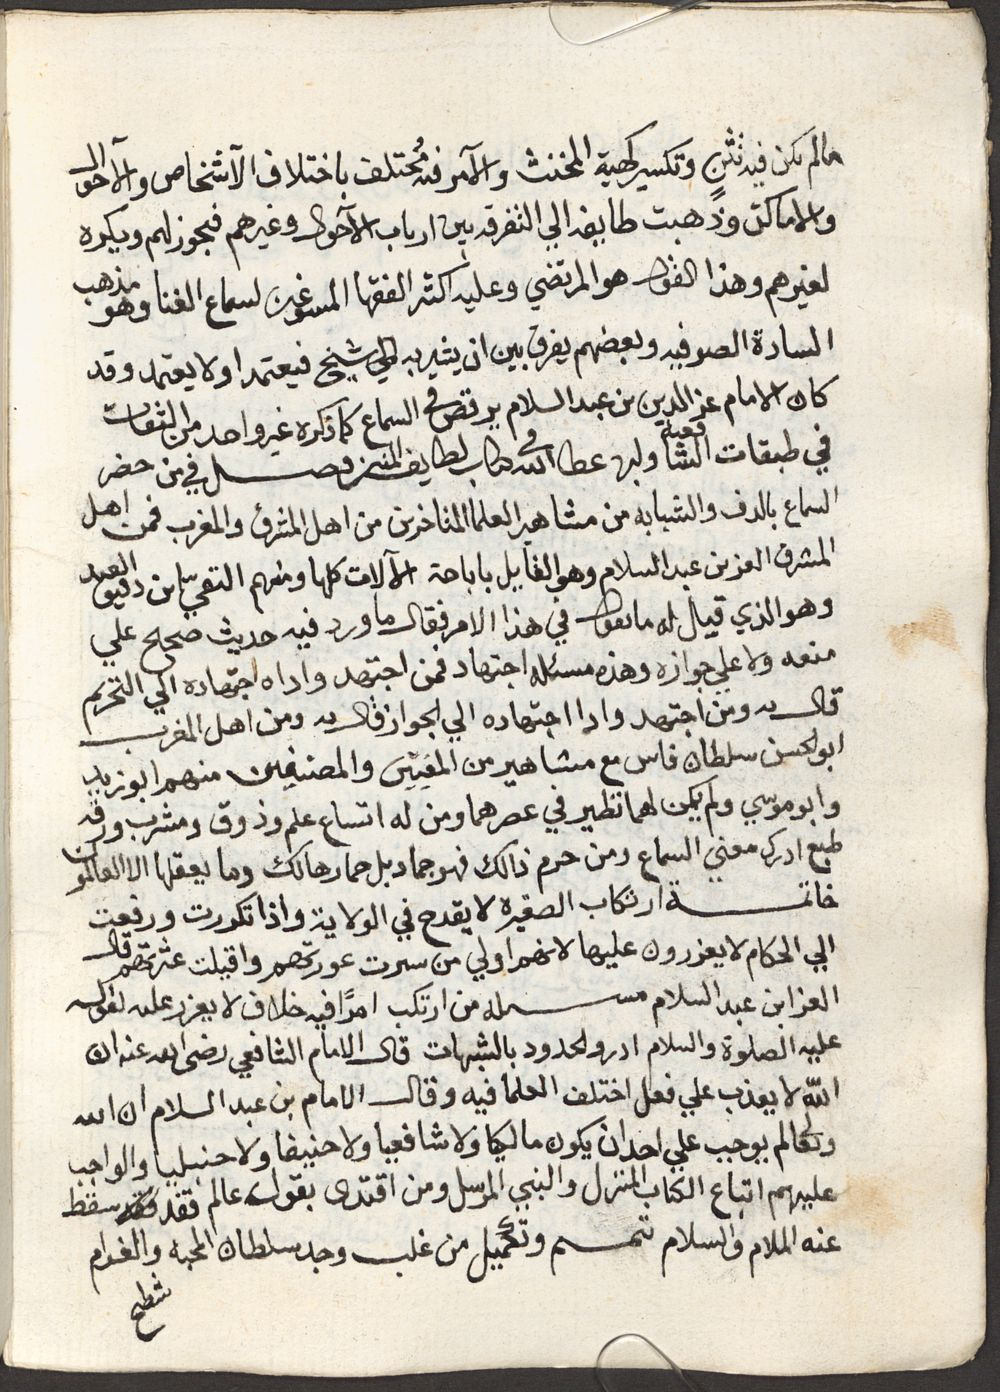 مالم يكن فيه تثنٍ وتكسير كهية المخنث والآمر فيه مُختلف باختلاف الآشخاص والآحوال
والاماكن وذهبت طايفه الي التفرقه بين ارباب الآحوال وغيرهم فيجوز لهم ويكره
لغيرهم وهذا القول هو المرتضي وعليه اكثر الفقها المسوغين لسماع الغنا وهو مذهب
السادة الصوفيه وبعضهم يفرق بين ان يشير به اليه شيخ فيعتمد اولا يعتمد وقد
كان الامام عز الدين بن عبد السلام يرقص في السماع كما ذكره غير واحد من الثقات
في طبقات الشافعية ولابن عطا الله في كتاب لطايف المنن فصل في من حضر
السماع بالدف والشبابه من مشاهير العلما المتاخرين من اهل المشرق والمغرب فمن اهل
المشرق العز بن عبد السلام وهو القآيل باباحة الآلات كلها ومنهم التقي ابن دقيق العيد
وهو الذي قيل له ما تقول في هذا الامر فقال ما ورد فيه حديث صحيح علي
منعه ولا علي جوازه وهذه مسئله اجتهاد فمن اجتهد واداه اجتهاده الي التحريم
قال به ومن اجتهد وادا اجتهاده الي الجواز قال به ومن اهل المغرب
ابو الحسن سلطان فاس مع مشاهير من المفيتين والمصنيفين منهم ابو زيد
وابو موسي ولم يكن لهما نظير في عصرهما ومن له اتساع علم وذوق ومشرب ورقه
طبع ادرك معني السماع ومن حرم ذالك فهو جماد بل حمار هالك وما يعقلها الا العالمون
خاتمة ارتكاب الصغيره لا يقدح في الولاية واذا تكررت ورفعت
الي الحكام لا يعزرون عليها لانهم اولي من سترت عورتهم واقيلت عثرتهم قال
العز ابن عبد السلام مسئله من ارتكب امرًا فيه خلاف لا يعزر عليه لقوله
عليه الصلوة والسلام ادرو الحدود بالشبهات قال الامام الشافعي رضي الله عنه ان
اللّه لا يعذب علي فعل اختلف العلما فيه وقال الامام بن عبد السلام ان الله
وتعالم يوجب علي احد ان يكون مالكيا ولا شافعيا ولا حنيفا ولا حنبليا والواجب
عليهم اتباع الكتاب المنزل والنبي المرسل ومن اقتدى بقول عالم فقد سقط
عنه الملام والسلام تتمسم وتكميل من غلب وجد سلطان المحبة والغرام
شطح